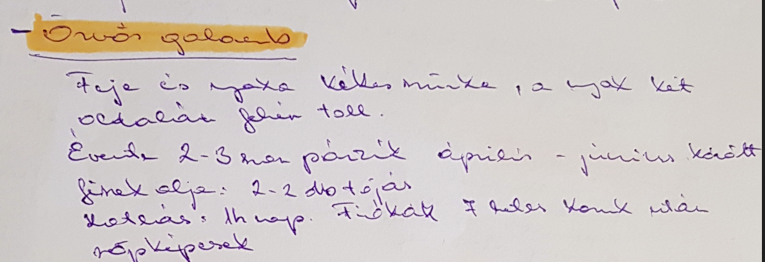 - Örvös galamb
Feje és nyaka kékes szürke, a nyak két
oldalán fehér toll.
Évente 2-3 szor párzik április - június között
fészekalja: 2-2 db tojás
Kotlás: 14 nap. Fiókák 7 hetes koruk után
röpképesek